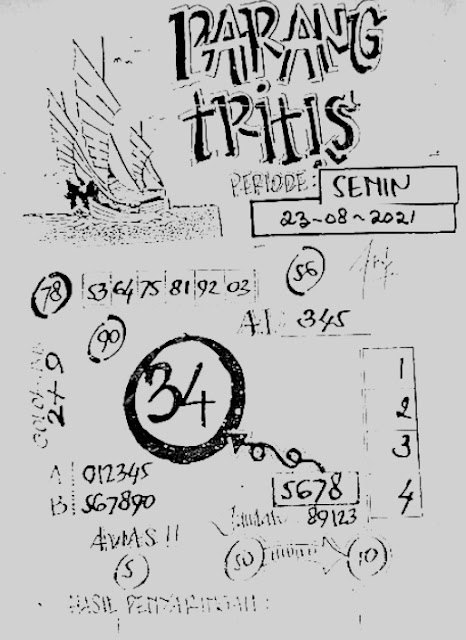 PARANG
TRITIS
PERIODE: SENIN
23-08-2021
78 53 64 75 81 92 03 56
90 A.I: 345
34
2+9
1
2
3
4
A 012345
B 567890
5678
89123
AWAS !!
5 50 10
HASIL PENYARINGAN: